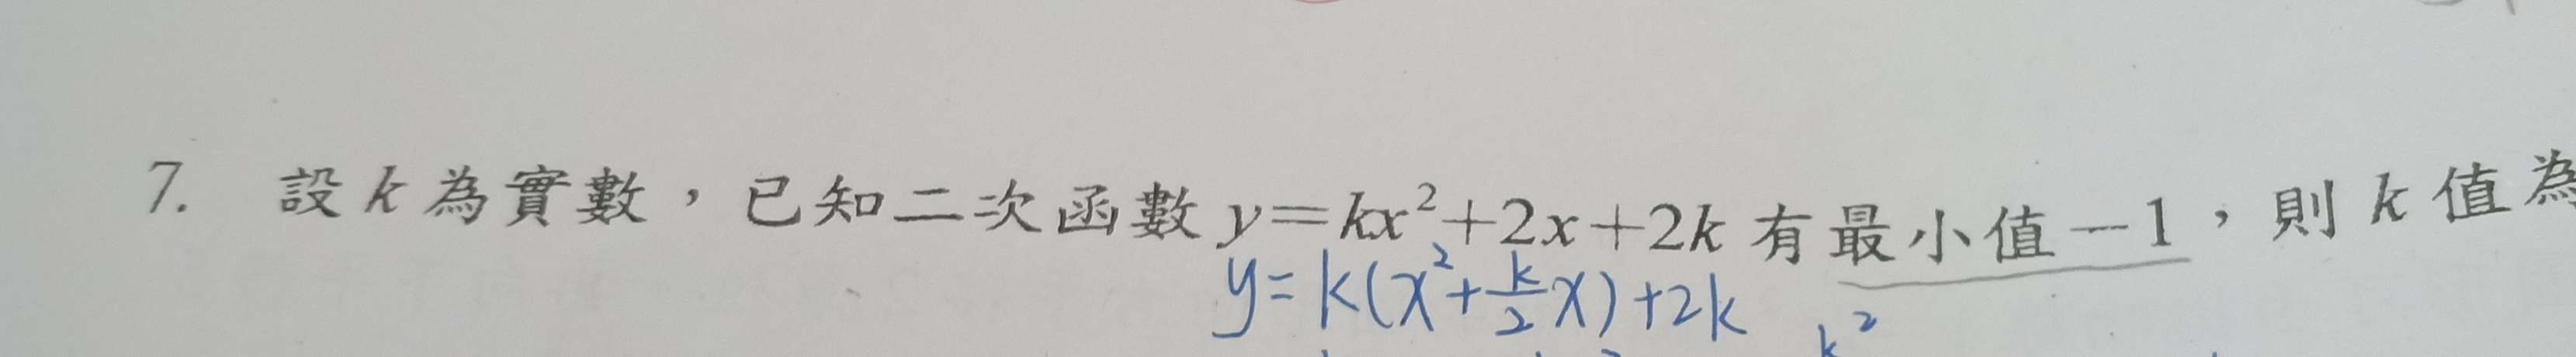 7. 設 k 為實數，已知二次函數 y=kx²+2x+2k 有最小值－1，則 k 值為
y=k(x²+\frac{k}{2}x)+2k
k²